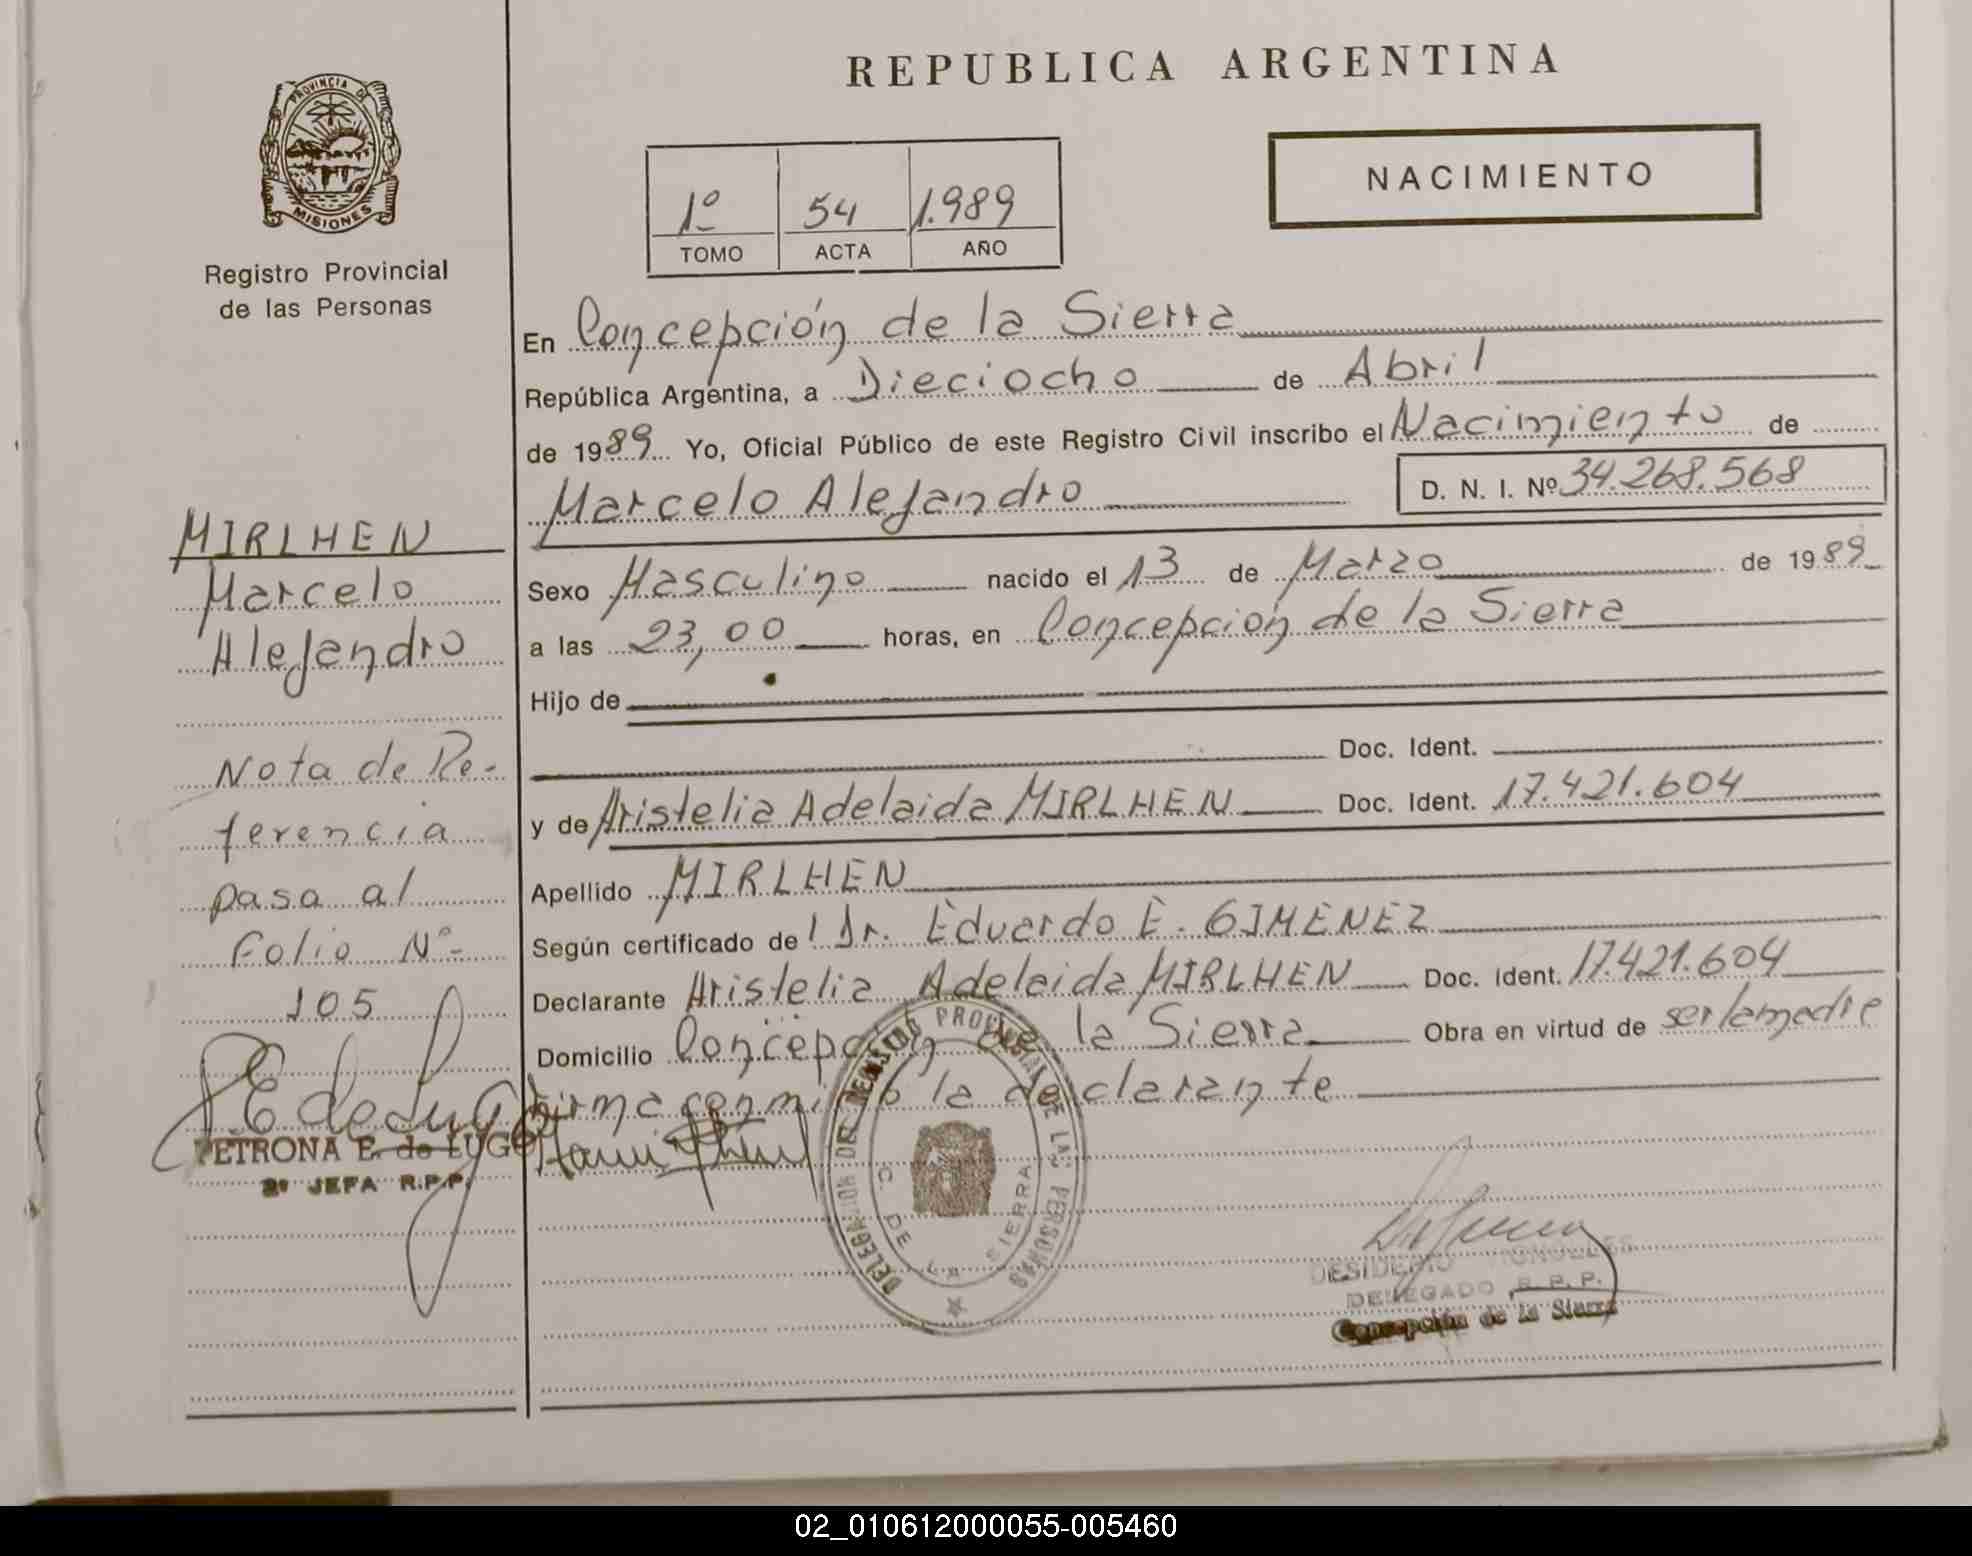 REPUBLICA ARGENTINA
PROVINCIA DE
MISIONES
Registro Provincial
de las Personas
1º 54 1.989
TOMO ACTA AÑO
NACIMIENTO
En Concepción de la Sierra
República Argentina, a Dieciocho de Abril
de 1989 Yo, Oficial Público de este Registro Civil inscribo el Nacimiento de
Marcelo Alejandro D. N. I. Nº 34.268.568
Sexo Masculino nacido el 13 de Marzo de 1989
a las 23,00 horas, en Concepción de la Sierra
Hijo de
Doc. Ident.
y de Aristelia Adelaida MIRLHEN Doc. Ident. 17.421.604
Apellido MIRLHEN
Según certificado de l Dr. Eduardo E. GIMENEZ
Declarante Aristelia Adelaida MIRLHEN Doc. Ident. 17.421.604
Domicilio Concepción de la Sierra Obra en virtud de ser la madre
Firma conmigo la declarante
MIRLHEN
Marcelo
Alejandro
Nota de Re-
ferencia
pasa al
Folio Nº-
105
P E de Lugo
PETRONA E. de LUGO
2ª JEFA R.P.P.
DELEGACION DEL REGISTRO PROVINCIAL DE LAS PERSONAS
C. DE LA SIERRA
DESIDERIO
DELEGADO R. P. P.
Concepción de la Sierra
02_010612000055-005460